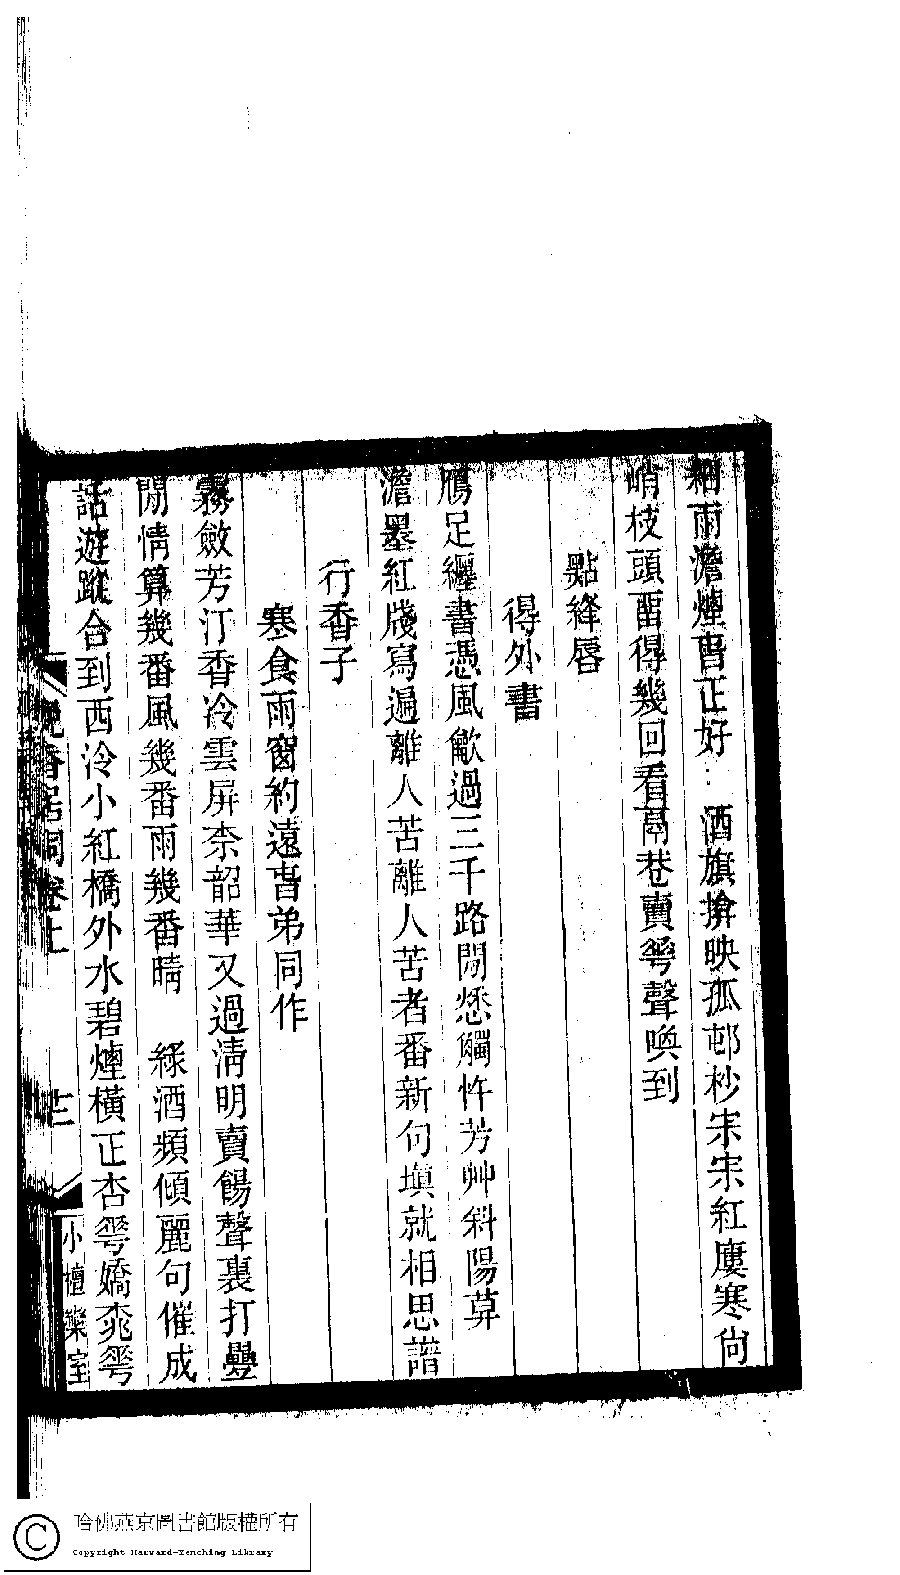 細雨澹煙旾正好　酒旗揜映孤邨杪宋宋紅廔寒尙
峭枝頭畱得幾回看鬲巷賣㠭聲喚到
點絳唇
得外書
鴈足纏書憑風歈過三千路閒愁觸忤芳艸斜陽莫
澹墨紅牋寫遍離人苦離人苦者番新句塡就相思譜
行香子
寒食雨窗約遠旾弟同作
霧斂芳汀香冷雲屏柰韶華又過淸明賣餳聲裏打疊
閒情算幾番風幾番雨幾番晴　綠酒頻傾麗句催成
話遊蹤合到西泠小紅橋外水碧煙橫正杏蕚嬌桃蕚
晚香居詞卷上
小檀欒室
哈佛燕京圖書館版權所有
Copyright Harvard-Yenching Library